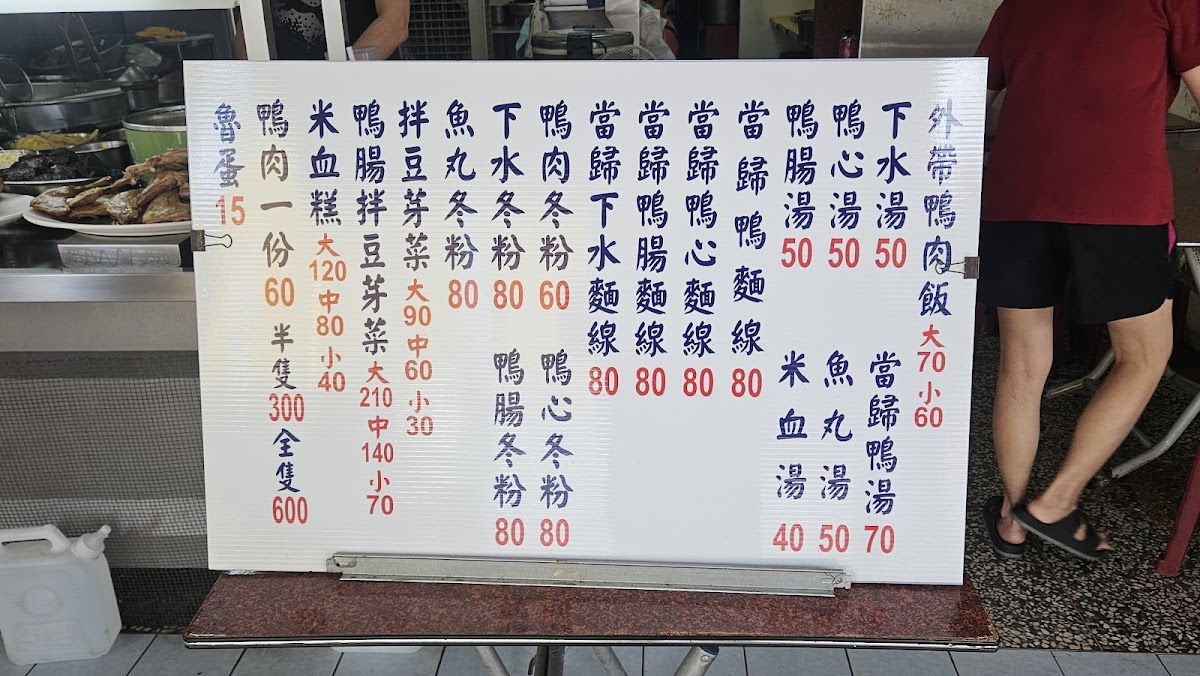 外帶鴨肉飯 大70 小60
下水湯 50
當歸鴨湯 70
鴨心湯 50
魚丸湯 50
鴨腸湯 50
米血湯 40
當歸鴨麵線 80
當歸鴨心麵線 80
當歸鴨腸麵線 80
當歸下水麵線 80
鴨肉冬粉 60
鴨心冬粉 80
下水冬粉 80
鴨腸冬粉 80
魚丸冬粉 80
拌豆芽菜 大90 中60 小30
鴨腸拌豆芽菜 大210 中140 小70
米血糕 大120 中80 小40
鴨肉一份 60 半隻 300 全隻 600
魯蛋 15